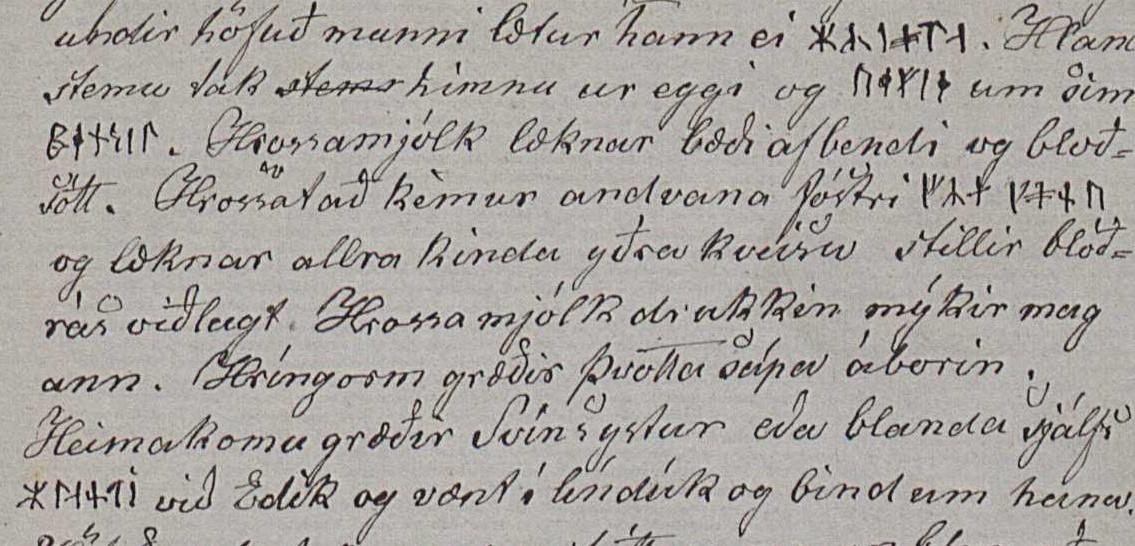 undir höfuð manni lætur hann ei . Hland
stemu tak himnu ur eggi og um sinn
. Hrossamjólk læknar bæði afbendi og bloð=
sótt. Hrossatað kèmur andvana fóstri
og læknar allra kinda yðra kveisu stillir blóð=
rás viðlagt. Hrossamjólk drukkin mýkir mag
ann. Hríngorm græðir Þvotta sápa áborin.
Heimakomu græðir Svínsystur eða blanda sjálfs
við Edik og vænt í líndúk og bind um hana.